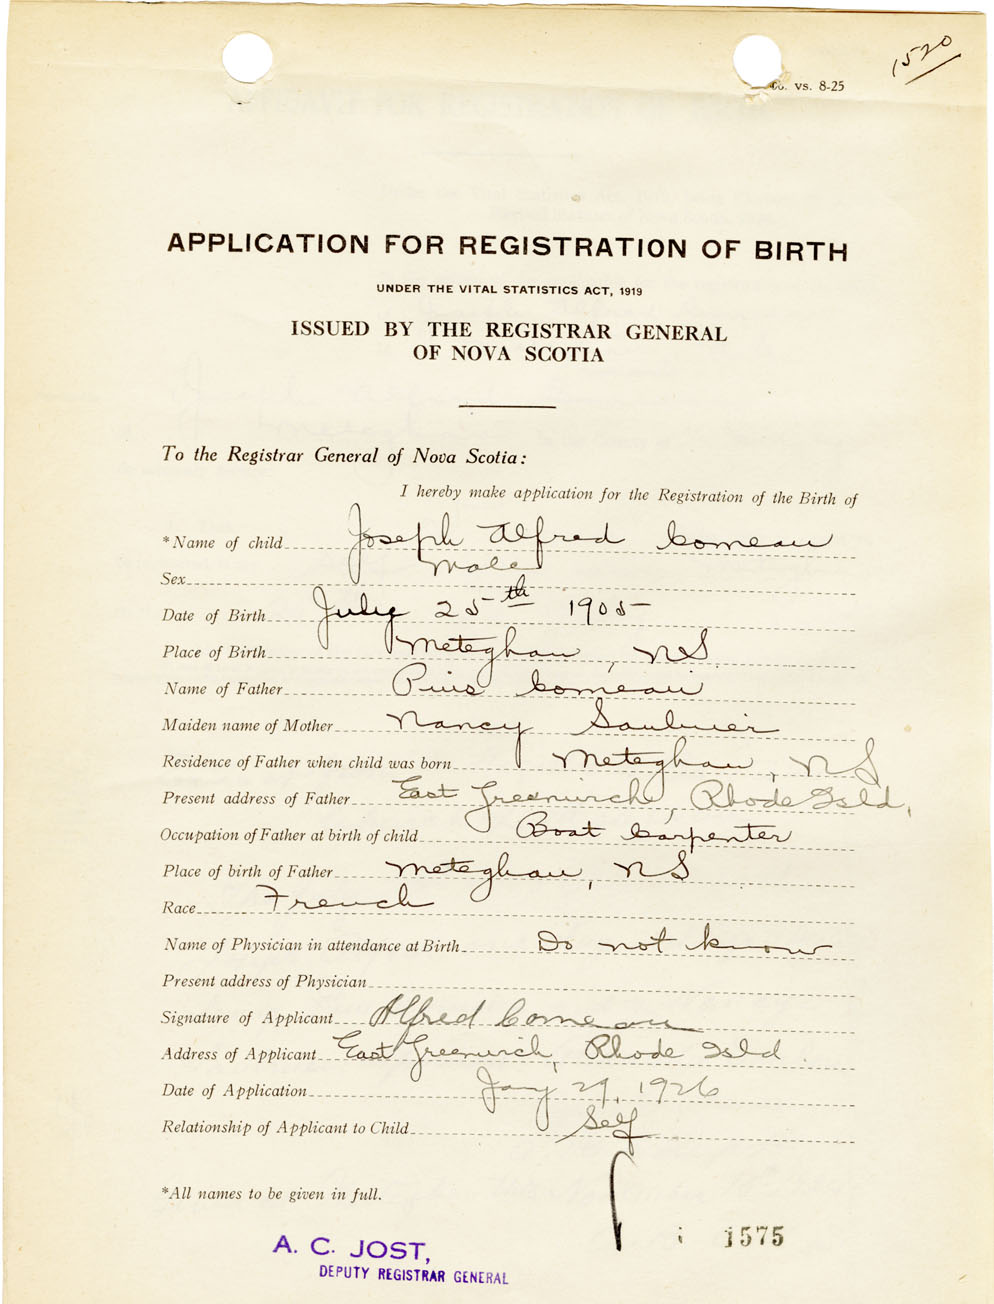 1520
Co. vs. 8-25
APPLICATION FOR REGISTRATION OF BIRTH
UNDER THE VITAL STATISTICS ACT, 1919
ISSUED BY THE REGISTRAR GENERAL
OF NOVA SCOTIA
To the Registrar General of Nova Scotia:
I hereby make application for the Registration of the Birth of
*Name of child Joseph Alfred Comeau
Sex Male
Date of Birth July 25th 1905
Place of Birth Meteghan, NS.
Name of Father Pius Comeau
Maiden name of Mother Nancy Saulnier
Residence of Father when child was born Meteghan, NS
Present address of Father East Greenwich, Rhode Isld.
Occupation of Father at birth of child Boat Carpenter
Place of birth of Father Meteghan, NS
Race French
Name of Physician in attendance at Birth Do not know
Present address of Physician
Signature of Applicant Alfred Comeau
Address of Applicant East Greenwich, Rhode Isld.
Date of Application Jany 29, 1926
Relationship of Applicant to Child Self
*All names to be given in full.
1575
A. C. JOST,
DEPUTY REGISTRAR GENERAL